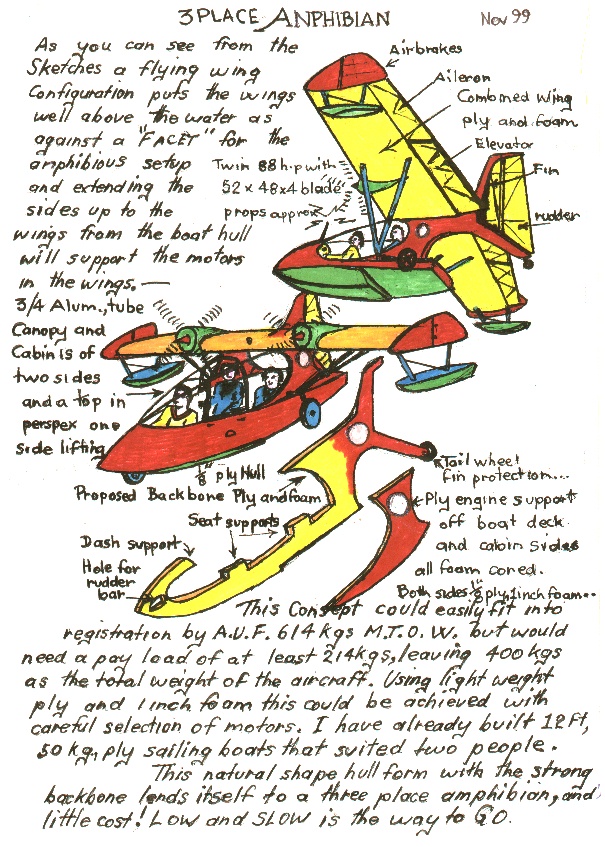 3 PLACE ANPHIBIAN
Nov 99
As you can see from the
Sketches a flying wing
Configuration puts the wings
well above the water as
against a "FACET" for the
amphibious setup
and extending the
sides up to the
wings from the boat hull
will support the motors
in the wings.—
Airbrakes
Aileron
Combined wing
ply and foam
Elevator
Fin
rudder
Twin 88 h.p with
52 x 48 x 4 blade
props approx
3/4 Alum., tube
Canopy and
Cabin is of
two sides
and a top in
perspex one
side lifting
1/8" ply Hull
Proposed Backbone Ply and foam
Seat supports
Dash support
Hole for
rudder
bar
Tail wheel
fin protection...
Ply engine support
off boat deck
and cabin sides
all foam cored.
Both sides 1/8" ply, 1inch foam..
This Consept could easily fit into
registration by A.U.F. 614 kgs M.T.O.W. but would
need a pay load of at least 214kgs, leaving 400 kgs
as the total weight of the aircraft. Using light weight
ply and 1 inch foam this could be achieved with
careful selection of motors. I have already built 12 Ft,
50 kg, ply sailing boats that suited two people.
This natural shape hull form with the strong
backbone lends itself to a three place amphibian, and
little cost! LOW and SLOW is the way to GO.